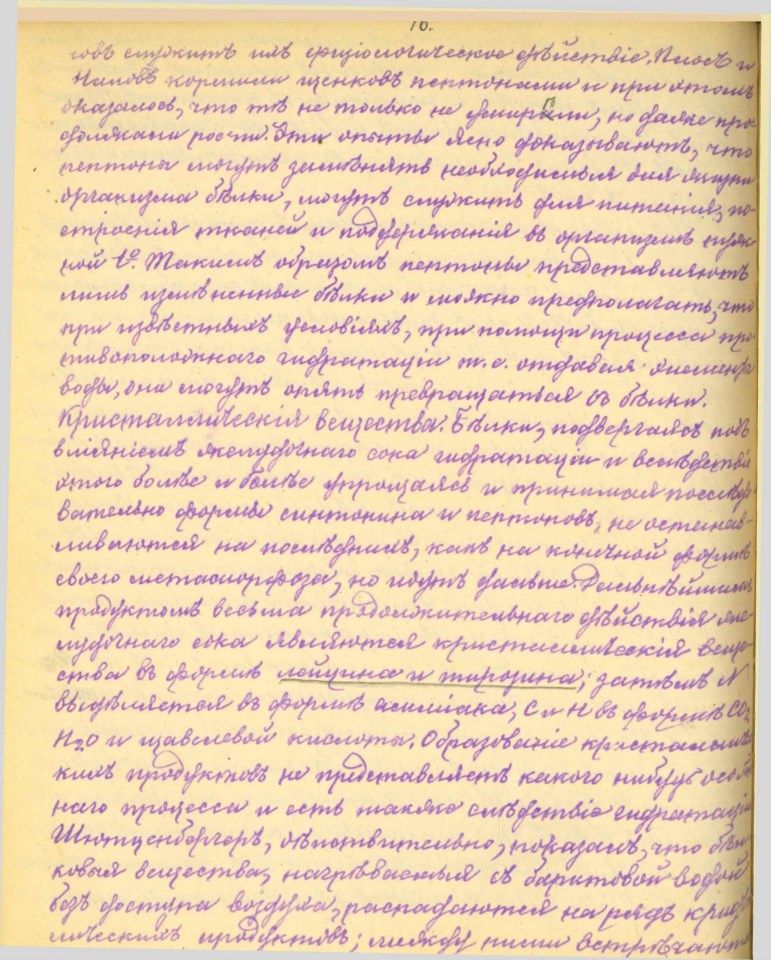 16.
товъ служитъ ихъ физіологическое дѣйствіе. Плосъ и
кормили щенковъ пептонами и при этомъ
оказалось, что тѣ не только не умирали, но даже про-
должали рости. Эти опыты ясно доказываютъ, что
пептоны могутъ замѣнять необходимыя для жизни
организма бѣлки, могутъ служить для питанія, по-
строенія тканей и поддержанія въ организмѣ нуж-
ной t°. Такимъ образомъ пептоны представляютъ
лишь измѣненные бѣлки и можно предполагать, что
при извѣстныхъ условіяхъ, при помощи процесса про-
тивоположнаго гидратаціи т.е. отдавая элементы
воды, они могутъ опять превращаться въ бѣлки.
Кристаллическія вещества. Бѣлки, подвергаясь подъ
вліяніемъ желудочнаго сока гидратаціи и вслѣдствіе
этого болѣе и болѣе упрощаясь и принимая послѣдо-
вательно формы синтонина и пептоновъ, не останав-
ливаются на послѣднихъ, какъ на конечной формѣ
своего метаморфоза, но идутъ дальше. Дальнѣйшимъ
продуктомъ весьма продолжительнаго дѣйствія же-
лудочнаго сока являются кристаллическія веще-
ства въ формѣ лейцина и тирозина; затѣмъ N
выдѣляется въ формѣ амміака, C и H въ формѣ CO2,
H2O и щавелевой кислоты. Образованіе кристалличес-
кихъ продуктовъ не представляетъ какого нибудь особен-
наго процесса и есть также слѣдствіе гидратаціи
Шютценбергеръ, дѣйствительно, показалъ, что бѣл-
ковыя вещества, нагрѣваемыя съ баритовой водой
безъ доступа воздуха, распадаются на рядъ кристал-
лическихъ продуктовъ; между ними встрѣчаются